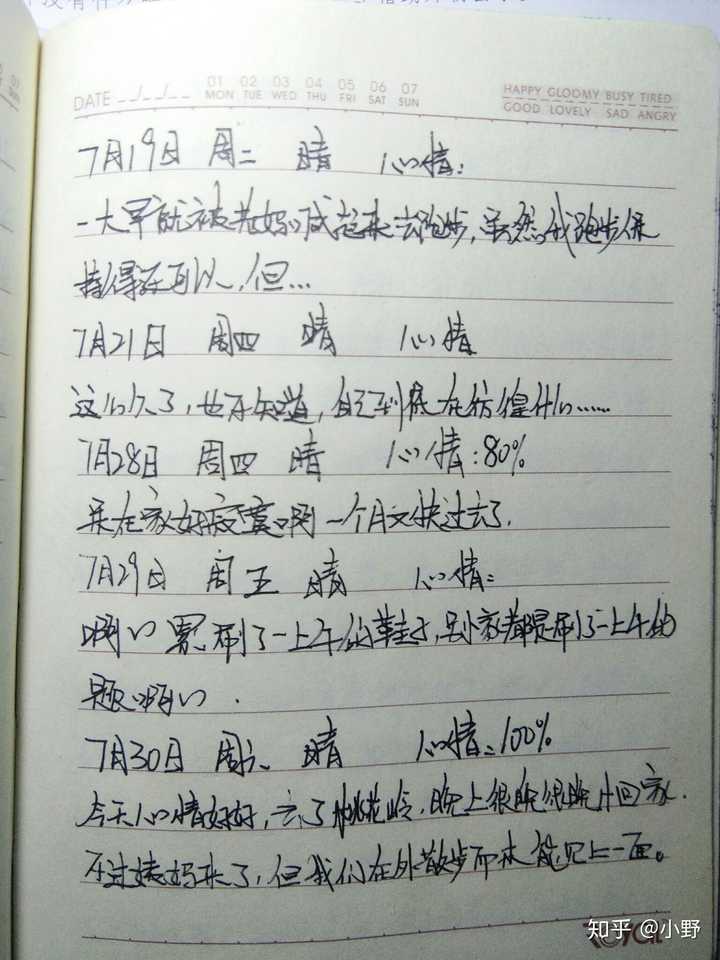 DATE __/__/__ 01 MON 02 TUE 03 WED 04 THU 05 FRI 06 SAT 07 SUN
HAPPY GLOOMY BUSY TIRED
GOOD LOVELY SAD ANGRY
7月19日 周二 晴 心情:
一大早就被老妈喊起来去跑步,虽然我跑步保
持得还可以,但...
7月21日 周四 晴 心情
这么久了,也不知道,自己到底在彷徨什么......
7月28日 周四 晴 心情:80%
呆在家好寂寞啊一个月又快过去了.
7月29日 周五 晴 心情:
啊 累刷了一上午的鞋子,别家都是刷了一上午的
题啊 .
7月30日 周六 晴 心情:100%
今天心情好好,去了桃花岭,晚上很晚很晚才回家.
不过姨妈来了,但我们在外散步而未能见上一面。
知乎 @小野